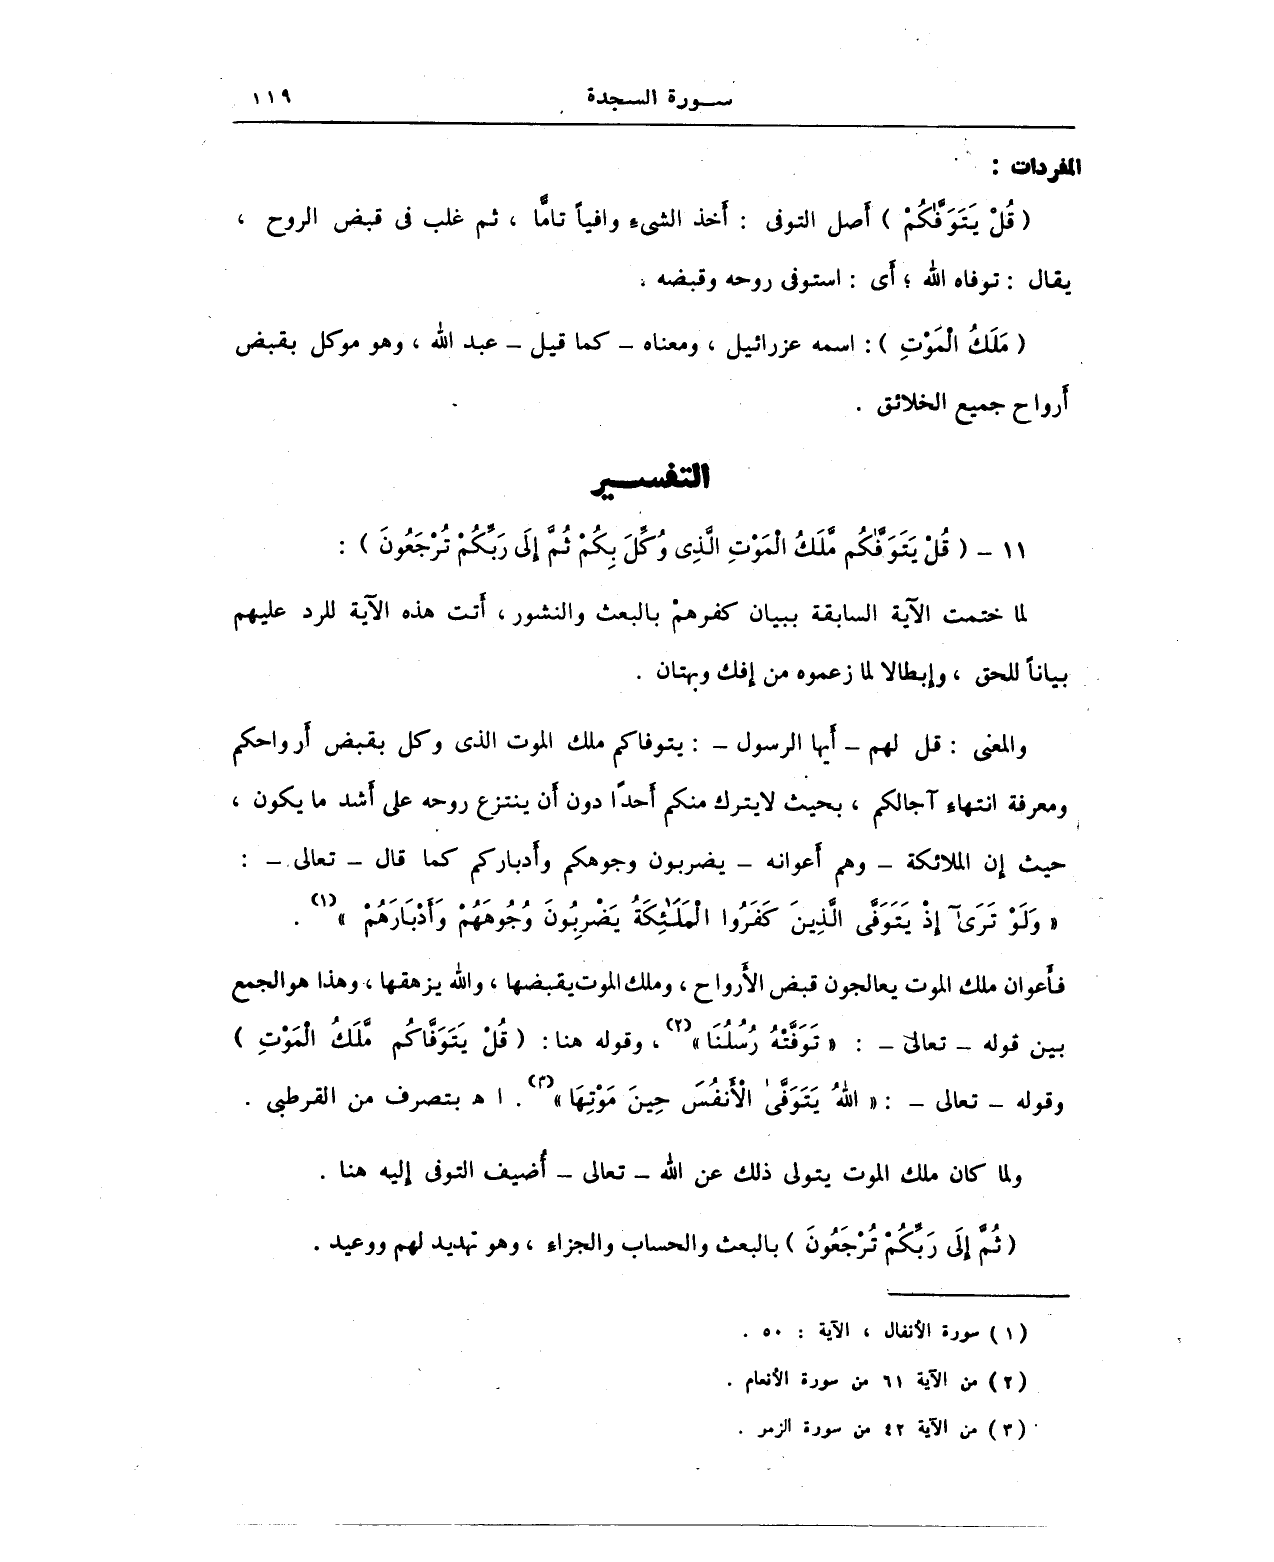 سورة السجدة ١١٩
المفردات :
( قُلْ يَتَوَفَّاكُمْ ) أصل التوفى : أخذ الشىء وافياً تامًّا ، ثم غلب فى قبض الروح ،
يقال : توفاه الله ؛ أى : استوفى روحه وقبضه .
( مَلَكُ الْمَوْتِ ) : اسمه عزرائيل ، ومعناه – كما قيل – عبد الله ، وهو موكل بقبض
أرواح جميع الخلائق .
التفسير
١١ – ( قُلْ يَتَوَفَّٰكُم مَّلَكُ الْمَوْتِ الَّذِى وُكِّلَ بِكُمْ ثُمَّ إِلَى رَبِّكُمْ تُرْجَعُونَ ) :
لما ختمت الآية السابقة ببيان كفرهمْ بالبعث والنشور ، أتت هذه الآية للرد عليهم
بياناً للحق ، وإبطالا لما زعموه من إفك وبهتان .
والمعنى : قل لهم – أيها الرسول – : يتوفاكم ملك الموت الذى وكل بقبض أرواحكم
ومعرفة انتهاء آجالكم ، بحيث لايترك منكم أحدًا دون أن ينتزع روحه على أشد ما يكون ،
حيث إن الملائكة – وهم أعوانه – يضربون وجوهكم وأدباركم كما قال – تعالى – :
« وَلَوْ تَرَىٰٓ إِذْ يَتَوَفَّى الَّذِينَ كَفَرُوا الْمَلَٰٓئِكَةُ يَضْرِبُونَ وُجُوهَهُمْ وَأَدْبَارَهُمْ »(١) .
فأعوان ملك الموت يعالجون قبض الأرواح ، وملك الموت يقبضها ، والله يزهقها ، وهذا هو الجمع
بين قوله – تعالى – : « تَوَفَّتْهُ رُسُلُنَا »(٢) ، وقوله هنا : ( قُلْ يَتَوَفَّاكُم مَّلَكُ الْمَوْتِ )
وقوله – تعالى – : « اللهُ يَتَوَفَّىٰ الْأَنفُسَ حِينَ مَوْتِهَا »(٣) . ا ه بتصرف من القرطبى .
ولما كان ملك الموت يتولى ذلك عن الله – تعالى – أُضيف التوفى إليه هنا .
( ثُمَّ إِلَى رَبِّكُمْ تُرْجَعُونَ ) بالبعث والحساب والجزاء ، وهو تهديد لهم ووعيد .
(١) سورة الأنفال ، الآية : ٥٠ .
(٢) من الآية ٦١ من سورة الأنعام .
(٣) من الآية ٤٢ من سورة الزمر .